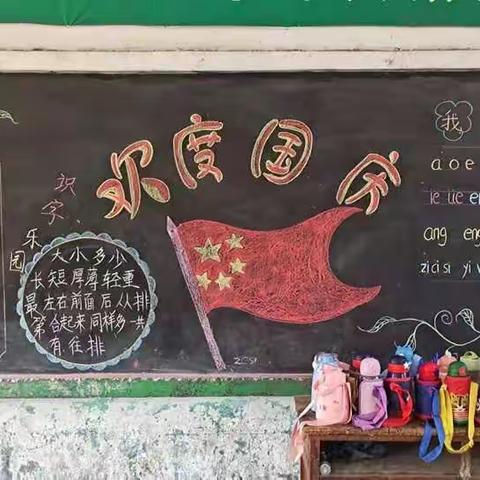 欢度国庆
识字乐园
大小多少
长短厚薄轻重
最左在前面后从排
第合起来同样多一共
有往排
我
a o e
ie üe er
ang eng
zi ci si yi